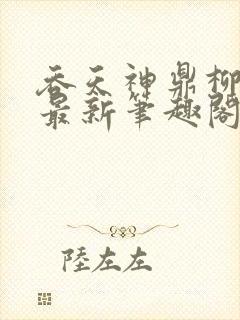 吞天神鼎柳
最新筆趣閣
陸左左